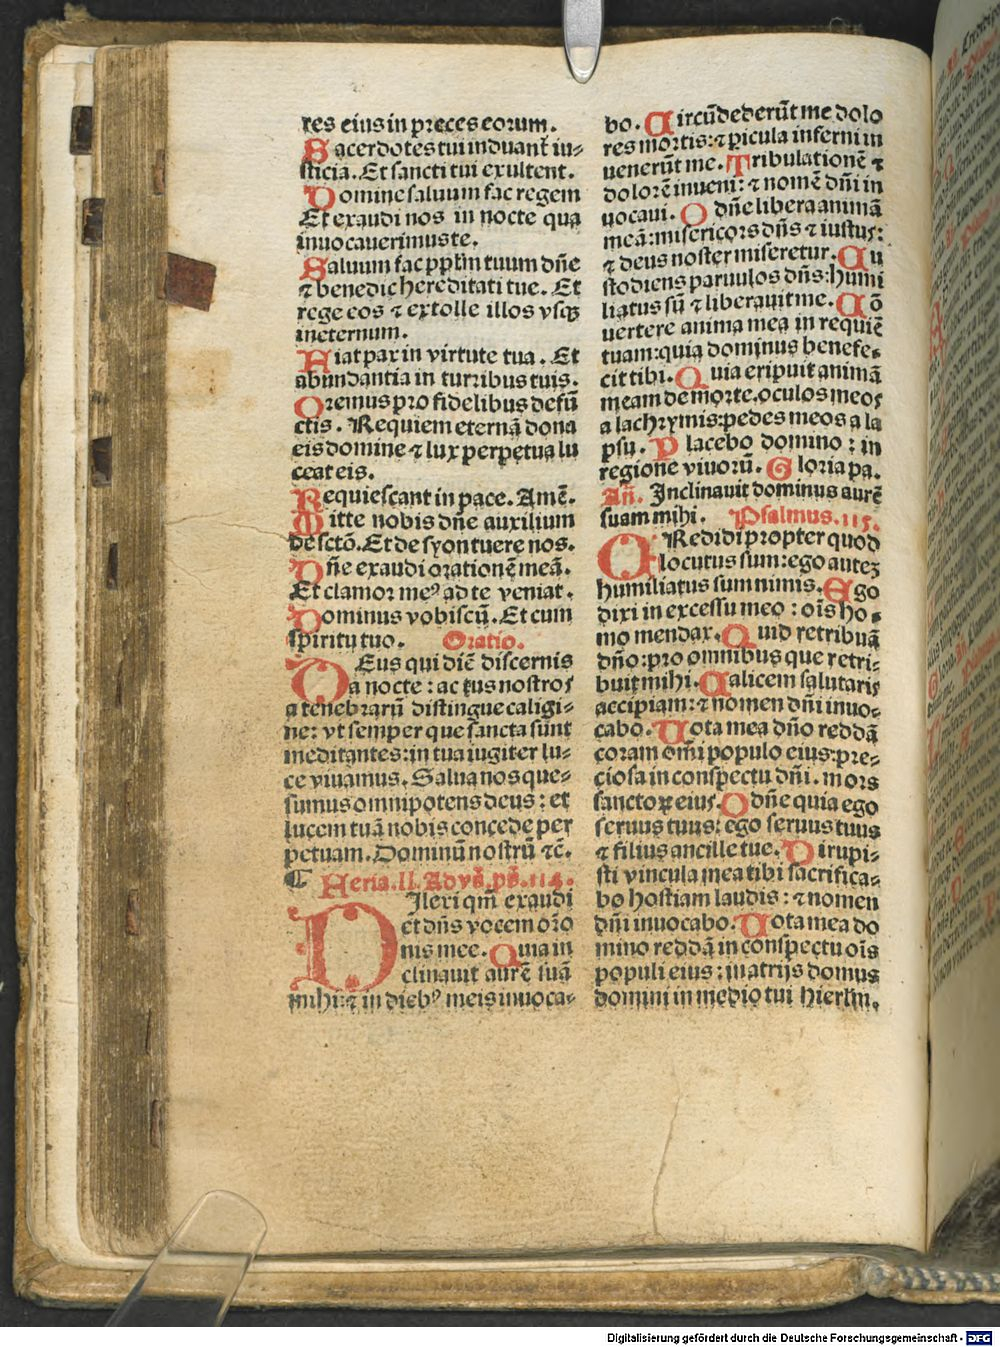 res eius in preces eorum.
Sacerdotes tui induant̄ iu-
sticia. Et sancti tui exultent.
Domine saluum fac regem
Et exaudi nos in nocte qua
inuocauerimus te.
Saluum fac pplm̄ tuum dn̄e
⁊ benedic hereditati tue. Et
rege eos ⁊ extolle illos vsqꝫ
in eternum.
Fiat pax in virtute tua. Et
abundantia in turribus tuis.
Oremus pro fidelibus defū
ctis. Requiem eternā dona
eis domine ⁊ lux perpetua lu
ceat eis.
Requiescant in pace. Amē.
Mitte nobis dn̄e auxilium
de sctō. Et de syon tuere nos.
Dn̄e exaudi orationē meā.
Et clamor meꝰ ad te veniat.
Dominus vobiscū. Et cum
spiritu tuo. Oratio.
DEus qui diē discernis
a nocte: actus nostros
a tenebrarū distingue caligi-
ne: vt semper que sancta sūnt
meditantes: in tua iugiter lu-
ce viuamus. Salua nos que-
sumus omnipotens deus: et
lucem tuā nobis concede per
petuam. Dominū nostrū ⁊c̄.
¶ Feria. II. Ad vs̄. ps̄. 114.
DIlexi qm̄ exaudi
et dn̄s vocem orō
nis mee. Quia in
clinauit aurē suā
mihi: ⁊ in diebꝰ meis inuoca-
bo. Circūdederūt me dolo
res mortis: ⁊ ꝑicula inferni in
uenerūt me. Tribulationē ⁊
dolorē inueni: ⁊ nomē dn̄i in
uocaui. O dn̄e libera animā
meā: misericors dn̄s ⁊ iustus:
⁊ deus noster miseretur. Cu
stodiens paruulos dn̄s: humi
liatus sū ⁊ liberauit me. Cō
uertere anima mea in requiē
tuam: quia dominus benefe-
cit tibi. Quia eripuit animā
meam de morte. oculos meos
a lachrymis: pedes meos a la
psu. Placebo domino: in
regione viuorū. Gloria pa.
Añ. Inclinauit dominus aurē
suam mihi. Psalmus. 115.
CRedidi propter quod
locutus sum: ego auteꝫ
humiliatus sum nimis. Ego
dixi in excessu meo: oīs ho-
mo mendax. Quid retribuā
dn̄o: pro omnibus que retri-
buit mihi. Calicem salutaris
accipiam: ⁊ nomen dn̄i inuo-
cabo. Uota mea dn̄o reddā
coram om̄i populo eius: pre-
ciosa in conspectu dn̄i. mors
sanctoꝝ eius. O dn̄e quia ego
seruus tuus: ego seruus tuus
⁊ filius ancille tue. Dirupi-
sti vincula mea tibi sacrifica-
bo hostiam laudis: ⁊ nomen
dn̄i inuocabo. Uota mea do
mino reddā in conspectu oīs
populi eius: in atrijs domus
domini in medio tui hierlm̄.
Digitalisierung gefördert durch die Deutsche Forschungsgemeinschaft - DFG